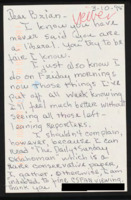 2-10-94
Dear Brian,
I know you have
never said you are
a liberal. You try to be
fair I know.
I just also know I
do on Friday mornings
now those things I've
put off all week knowing
I'll feel much better without
seeing all those left-
leaning reporters.
I shouldn't complain,
however, because I can
read the Daily
which is a
more conservative paper,
I gather, otherwise, I am
indebted to
Thank you